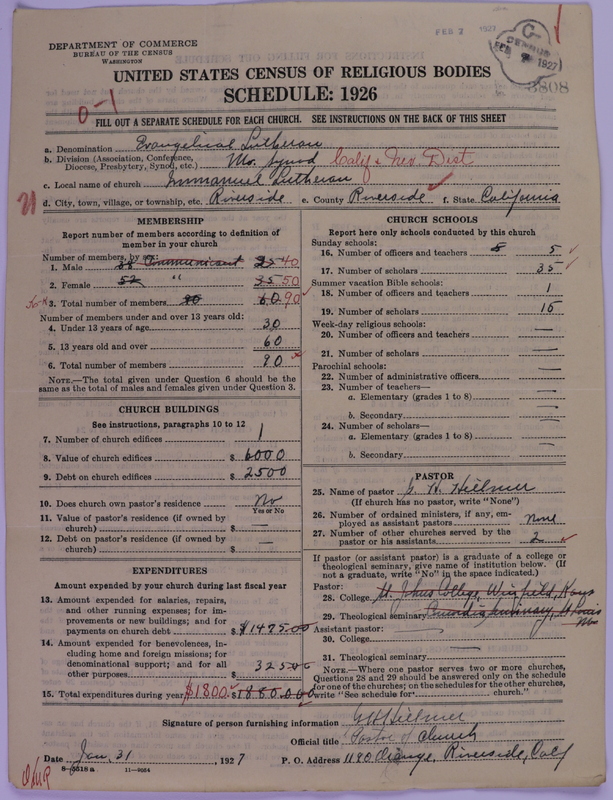 DEPARTMENT OF COMMERCE
BUREAU OF THE CENSUS
WASHINGTON
FEB 2 1927
CENSUS
1927
3808
UNITED STATES CENSUS OF RELIGIOUS BODIES
SCHEDULE: 1926
0-1
FILL OUT A SEPARATE SCHEDULE FOR EACH CHURCH. SEE INSTRUCTIONS ON THE BACK OF THIS SHEET
a. Denomination Evangelical Lutheran
b. Division (Association, Conference, Diocese, Presbytery, Synod, etc.) Mo. Synod Calif & Nev. Dist
c. Local name of church Immanuel Lutheran
d. City, town, village, or township, etc. Riverside e. County Riverside f. State California
MEMBERSHIP
Report number of members according to definition of
member in your church
Number of members, by sex:
1. Male 38 Communicant 25 40
2. Female 52 " 35 50
3. Total number of members 90 60 90
Number of members under and over 13 years old:
4. Under 13 years of age 30
5. 13 years old and over 60
6. Total number of members 90
NOTE.—The total given under Question 6 should be the
same as the total of males and females given under Question 3.
CHURCH BUILDINGS
See instructions, paragraphs 10 to 12
7. Number of church edifices 1
8. Value of church edifices $ 6000
9. Debt on church edifices $ 2500
10. Does church own pastor's residence? No
Yes or No
11. Value of pastor's residence (if owned by
church) $ —
12. Debt on pastor's residence (if owned by
church) $ —
EXPENDITURES
Amount expended by your church during last fiscal year
13. Amount expended for salaries, repairs,
and other running expenses; for im-
provements or new buildings; and for
payments on church debt $ 1475.00
14. Amount expended for benevolences, in-
cluding home and foreign missions; for
denominational support; and for all
other purposes 325.00
15. Total expenditures during year $1800. $1880.00
CHURCH SCHOOLS
Report here only schools conducted by this church
Sunday schools:
16. Number of officers and teachers 5 5
17. Number of scholars 35
Summer vacation Bible schools:
18. Number of officers and teachers 1
19. Number of scholars 15
Week-day religious schools:
20. Number of officers and teachers —
21. Number of scholars —
Parochial schools:
22. Number of administrative officers —
23. Number of teachers—
a. Elementary (grades 1 to 8) —
b. Secondary —
24. Number of scholars—
a. Elementary (grades 1 to 8) —
b. Secondary —
PASTOR
25. Name of pastor G. H. Hillmer
(If church has no pastor, write "None")
26. Number of ordained ministers, if any, em-
ployed as assistant pastors None
27. Number of other churches served by the
pastor or his assistants 2
If pastor (or assistant pastor) is a graduate of a college or
theological seminary, give name of institution below. (If
not a graduate, write "No" in the space indicated.)
Pastor:
28. College St. Johns College, Winfield, Kans
29. Theological seminary Concordia Seminary, St Louis Mo
Assistant pastor:
30. College —
31. Theological seminary —
NOTE.—Where one pastor serves two or more churches,
Questions 28 and 29 should be answered only on the schedule
for one of the churches; on the schedules for the other churches,
write "See schedule for church."
Signature of person furnishing information G H Hillmer
Official title Pastor of Church
Date Jan. 31 1927 P. O. Address 1180 Orange, Riverside, Calif
8—5518 a 11—9564